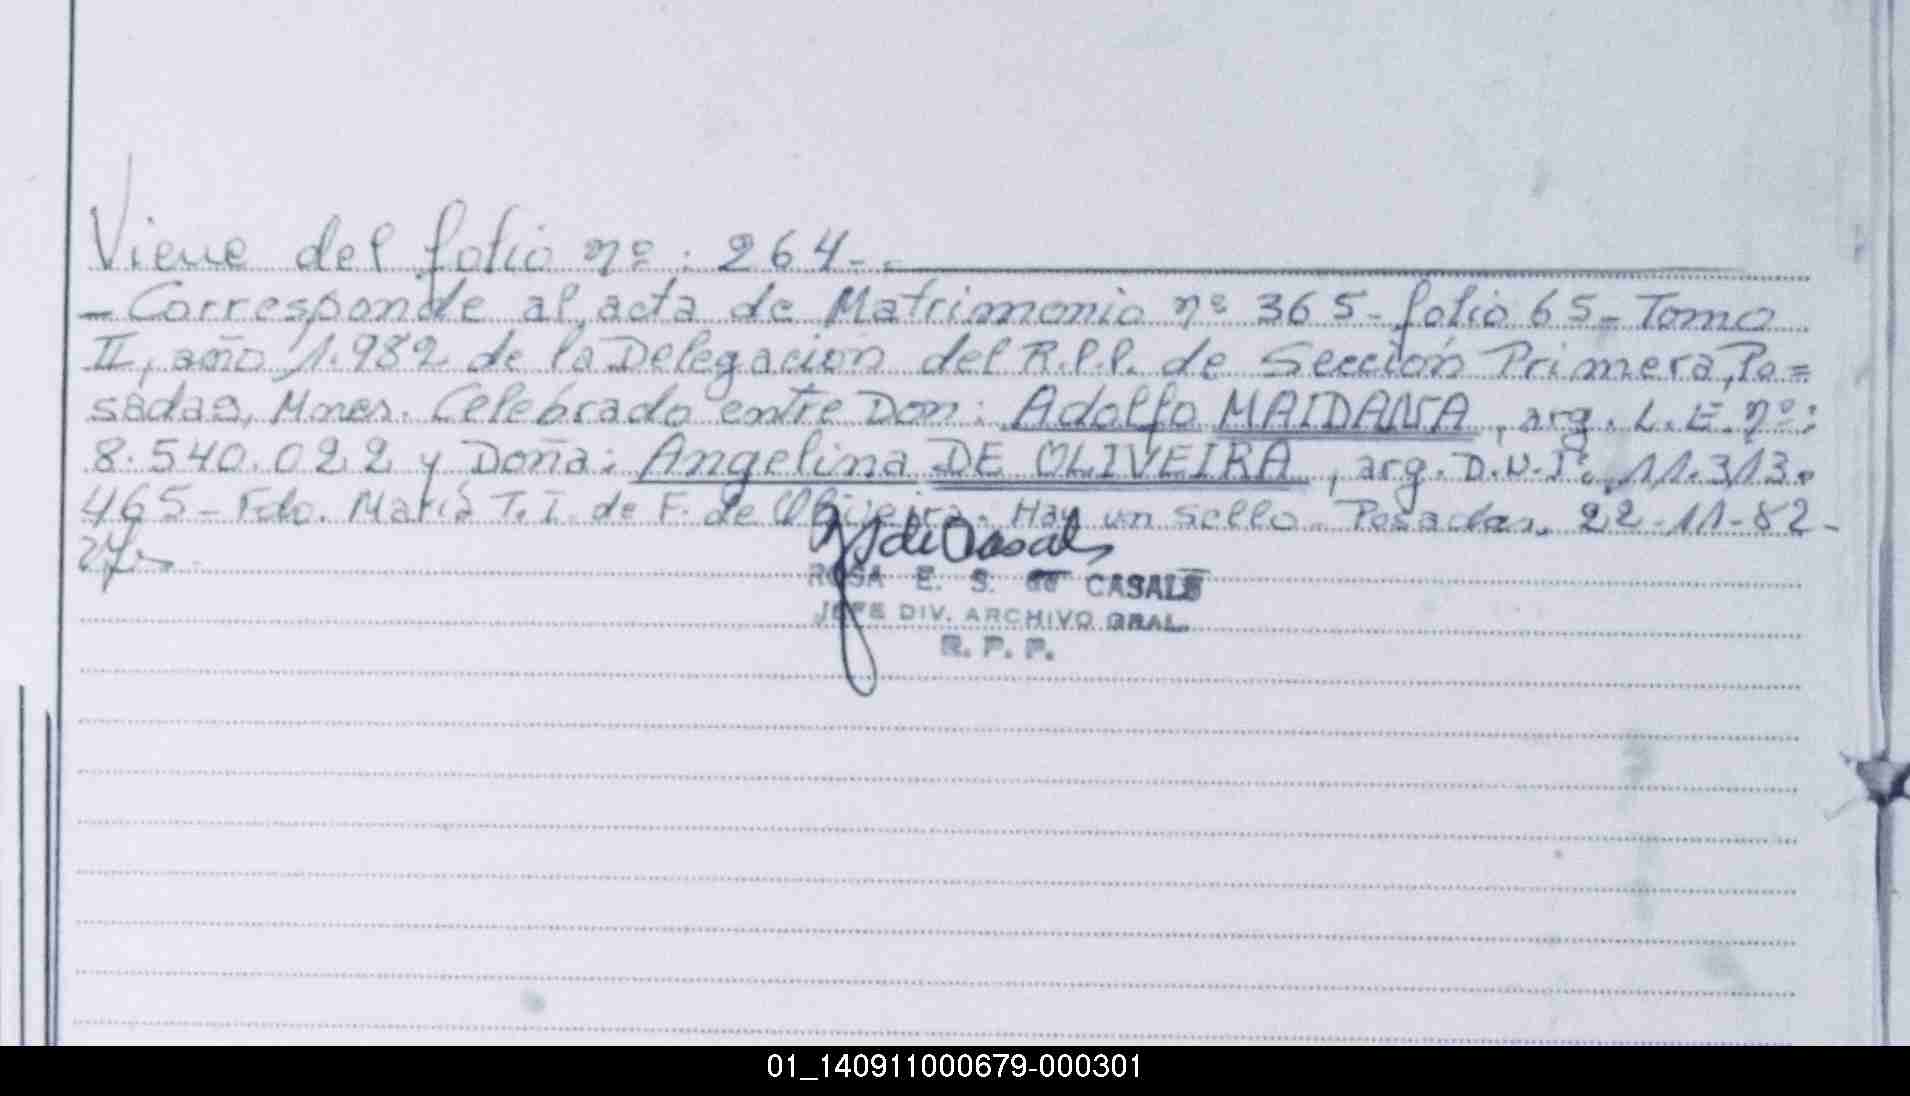 Viene del folio nº: 264-.
- Corresponde al acta de Matrimonio nº 365- folio 65- Tomo
II, año 1.982 de la Delegación del R.P.P. de Sección Primera, Po=
sadas, Mnes. Celebrado entre Don: Adolfo MAIDANA, arg. L.E. nº:
8.540.022 y Doña: Angelina DE OLIVEIRA, arg. D.N.I. 11.313.
465- Fdo. María T. I. de F. de Hay un sello. Posadas, 22-11-82-
de Casals
ROSA E. S. de CASALS
JEFE DIV. ARCHIVO GRAL.
R. P. P.
01_140911000679-000301